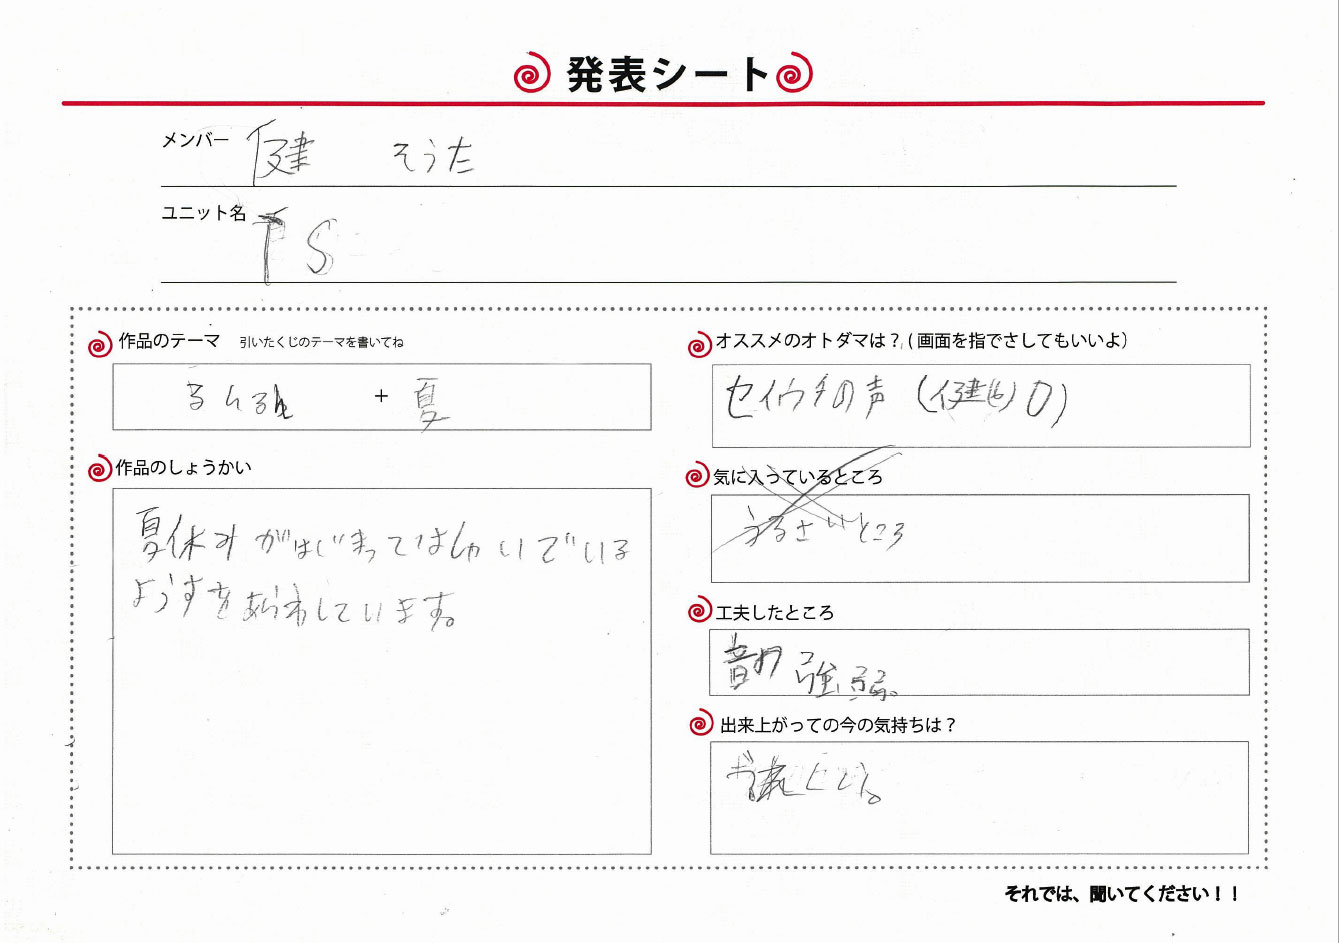 発表シート
メンバー 健 そうた
ユニット名 TS
作品のテーマ 引いたくじのテーマを書いてね
るんるん + 夏
作品のしょうかい
夏休みがはじまってはしゃいでいる
ようすをあらわしています。
オススメのオトダマは？(画面を指でさしてもいいよ)
セイウチの声(健の)
気に入っているところ
うるさいところ
工夫したところ
音の強弱。
出来上がっての今の気持ちは？
それでは、聞いてください！！